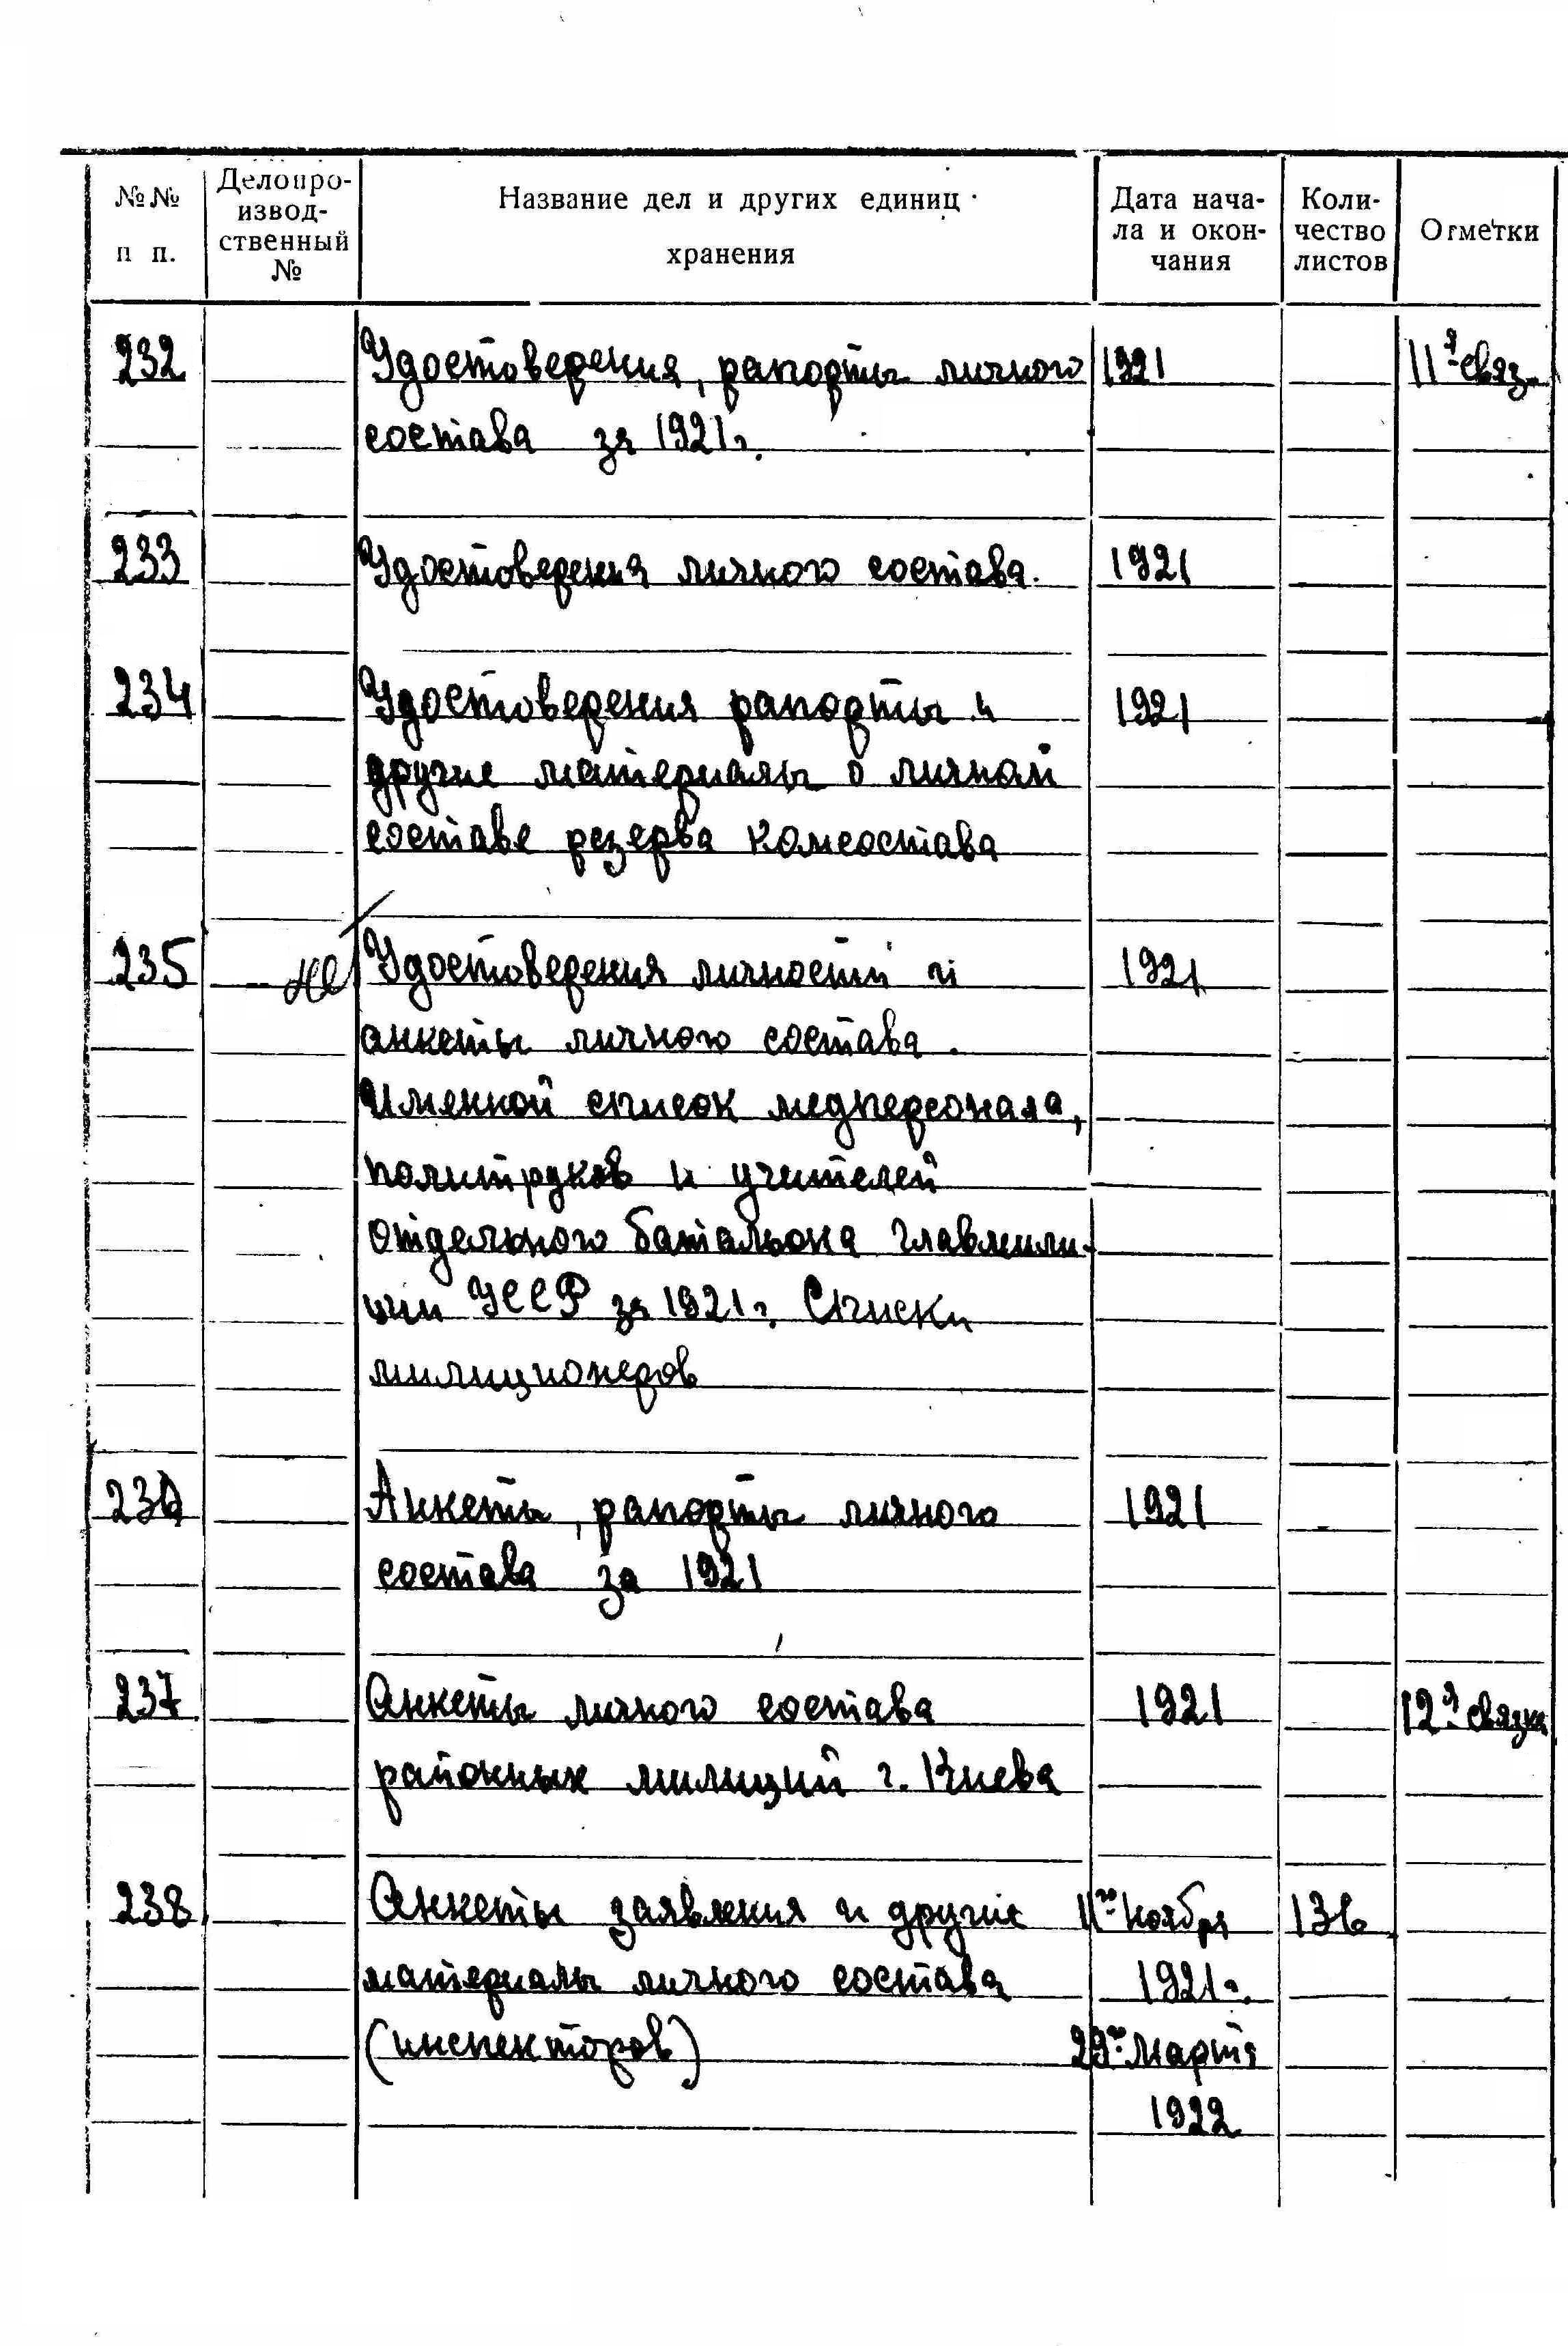 №№ п п.
Делопро-
извод-
ственный
№
Название дел и других единиц
хранения
Дата нача-
ла и окон-
чания
Коли-
чество
листов
Отметки
232 Удостоверения, рапорты личного 1921 11я связ.
состава за 1921г.
233 Удостоверения личного состава. 1921
234 Удостоверения рапорты и 1921
другие материалы о личном
составе резерва комсостава
235 Удостоверения личности и 1921
анкеты личного состава.
Именной список медперсонала,
политруков и учителей
отдельного батальона Главмили-
ции УССР за 1921г. Списки
милиционеров
236 Анкеты, рапорты личного 1921
состава за 1921
237 Анкеты личного состава 1921 12я связка
районных милиций г. Киева
238 Анкеты заявления и другие 11го ноября 136
материалы личного состава 1921г.
(инспекторов) 29го марта
1922